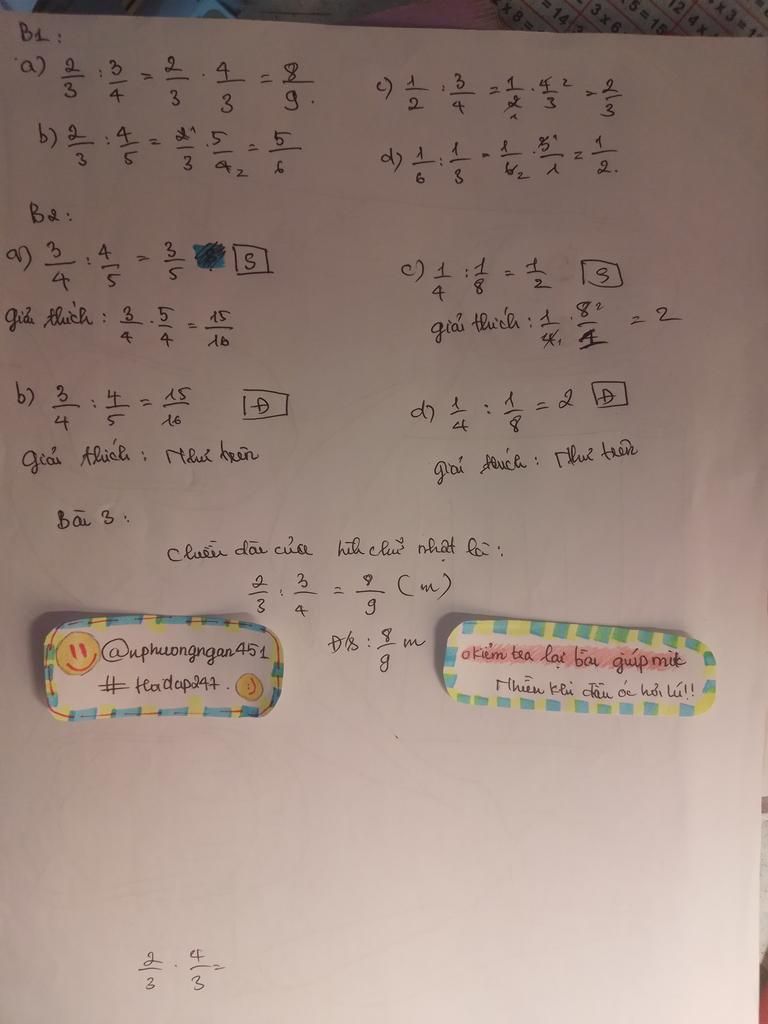 B1:
a) 2/3 : 3/4 = 2/3 . 4/3 = 8/9.
b) 2/3 : 4/5 = 2¹/3 . 5/4₂ = 5/6
c) 1/2 : 3/4 = 1/2₁ . 4²/3 = 2/3
d) 1/6 : 1/3 = 1/6₂ . 3¹/1 = 1/2.
B2:
a) 3/4 : 4/5 = 3/5 S
giải thích : 3/4 . 5/4 = 15/16
b) 3/4 : 4/5 = 15/16 Đ
giải thích : Như trên
c) 1/4 : 1/8 = 1/2 S
giải thích : 1/4₁ . 8²/1 = 2
d) 1/4 : 1/8 = 2 Đ
giải thích : Như trên
Bài 3 :
Chiều dài của hình chữ nhật là :
2/3 : 3/4 = 8/9 (m)
Đ/S : 8/9 m
@nphuongngan451
# hoidap247.
Kiểm tra lại bài giúp mik
Nhiều khi đầu óc hơi lú!!
2/3 . 4/3 =